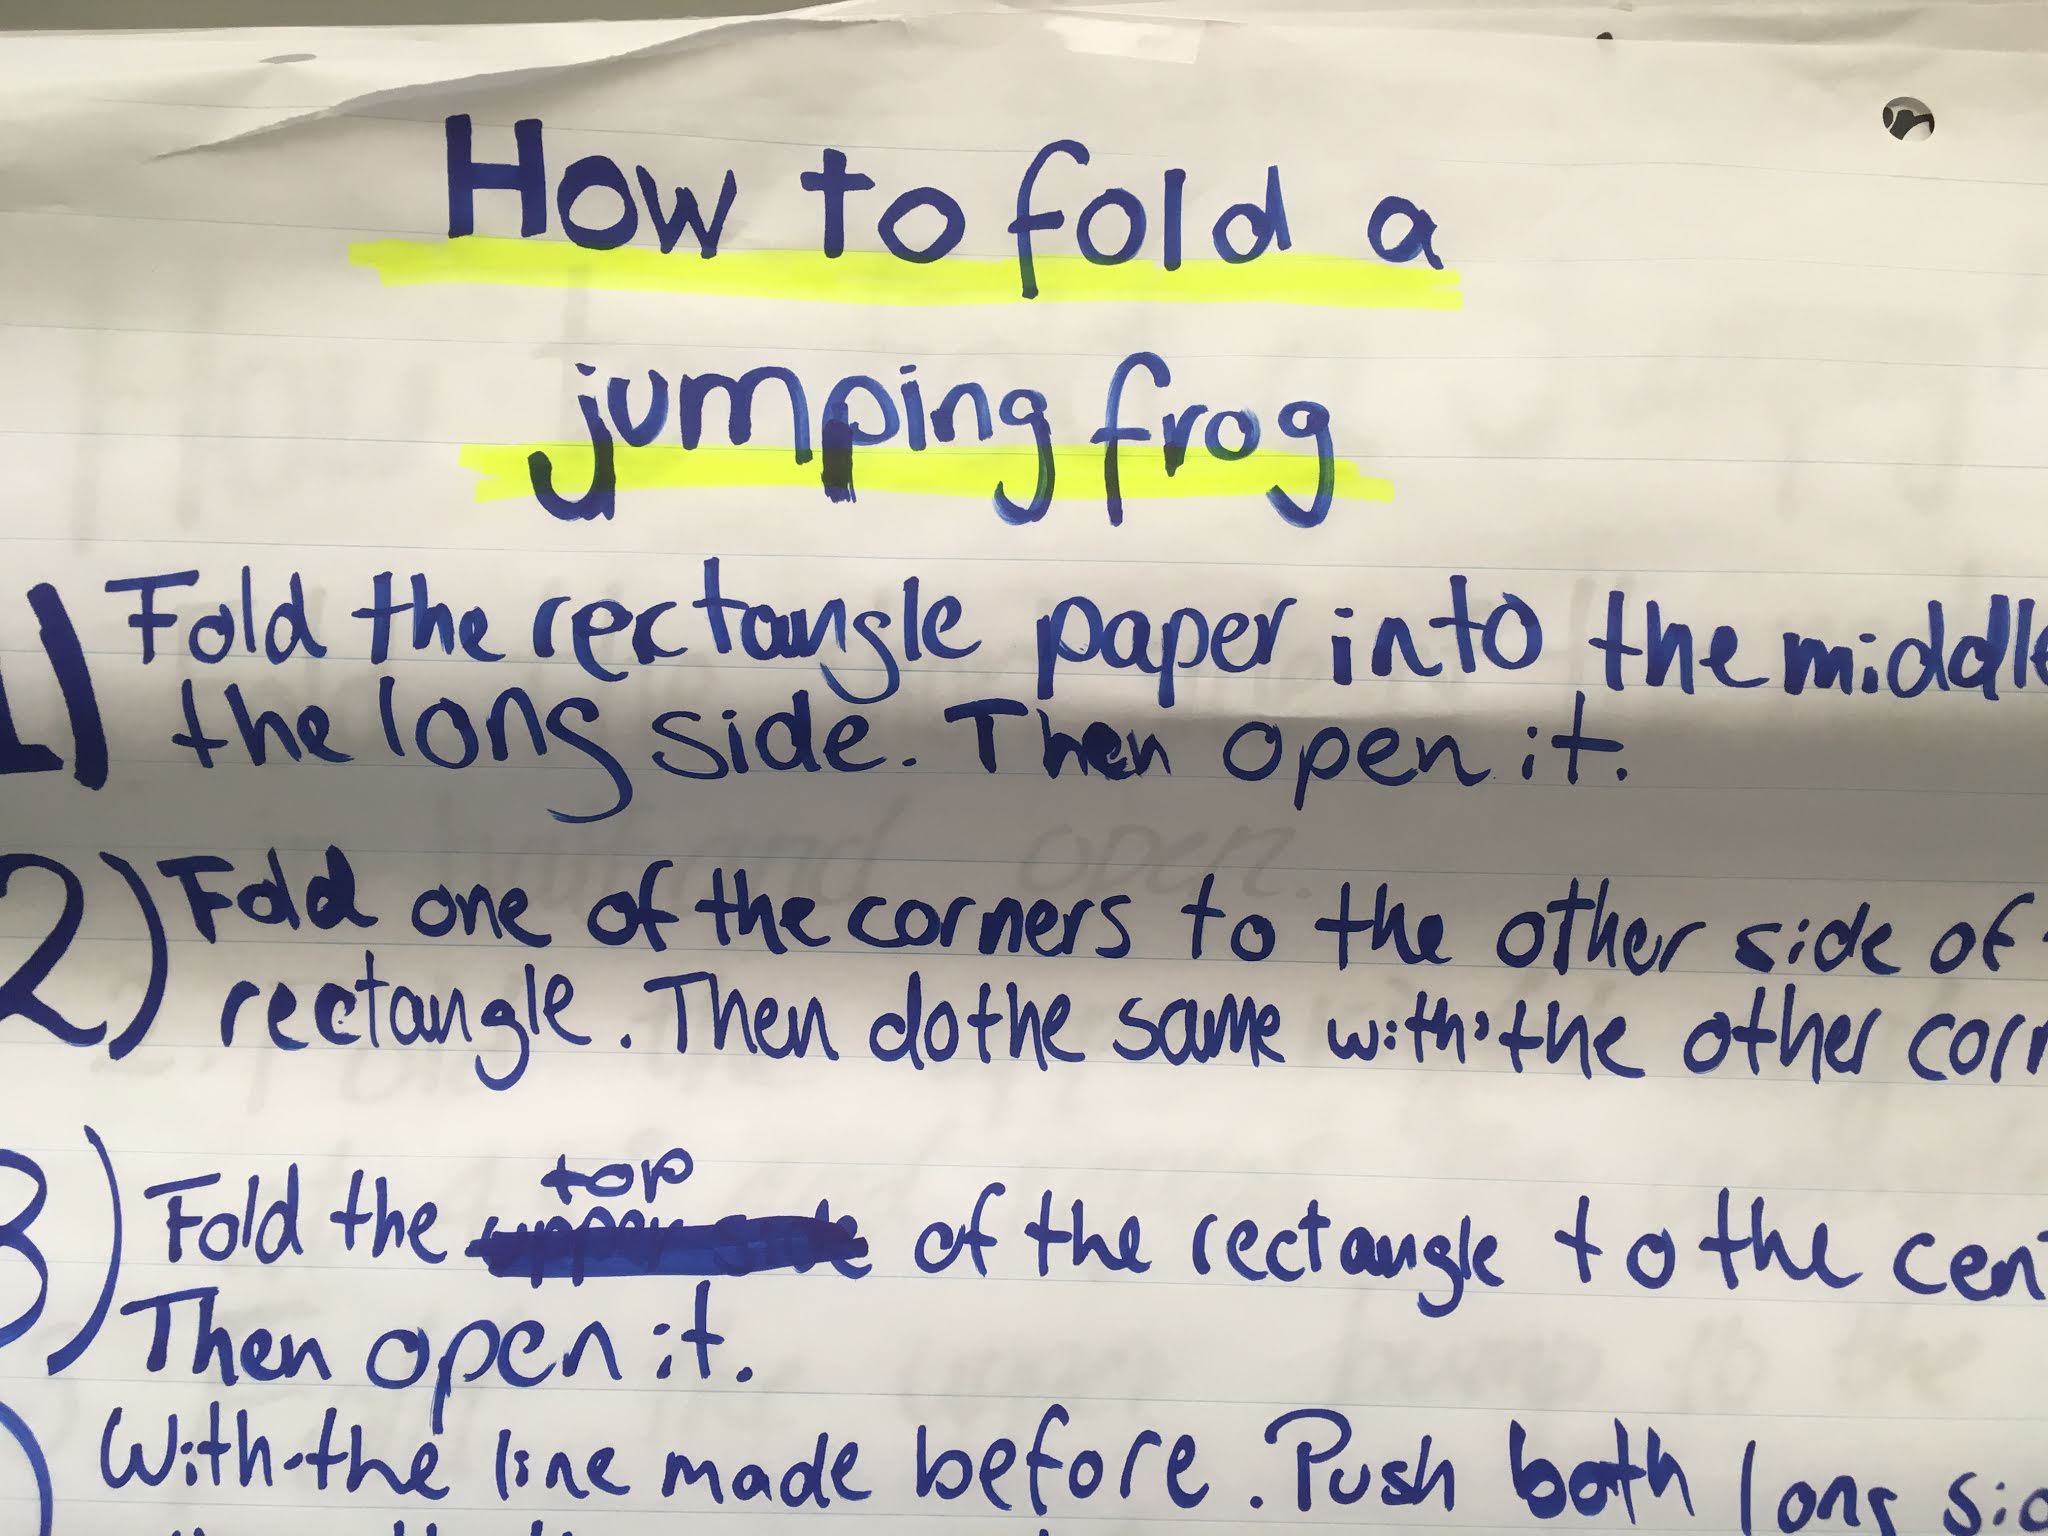 How to fold a
jumping frog
1) Fold the rectangle paper into the middle
the long side. Then open it.
2) Fold one of the corners to the other side of
rectangle. Then do the same with the other corn
top
3) Fold the upper side of the rectangle to the cen
Then open it.
With the line made before. Push both long sid